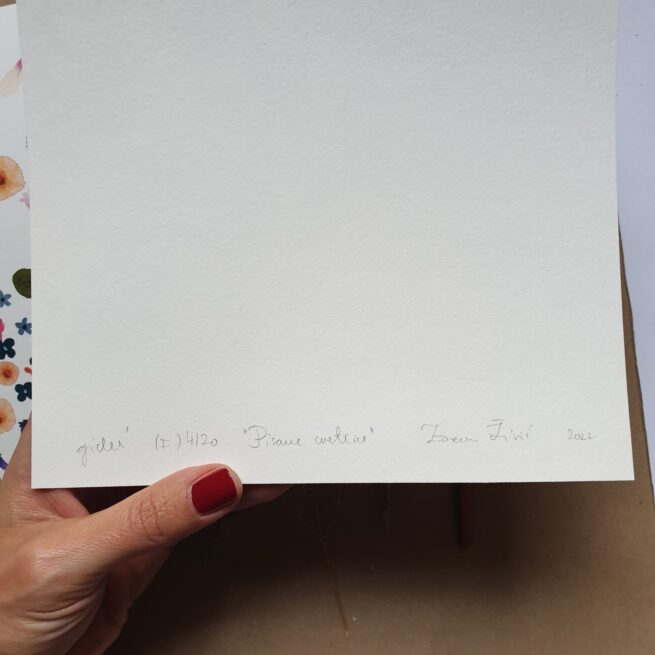 gicleé (I) 4/20 "Pisane cvetlice" Živić 2022